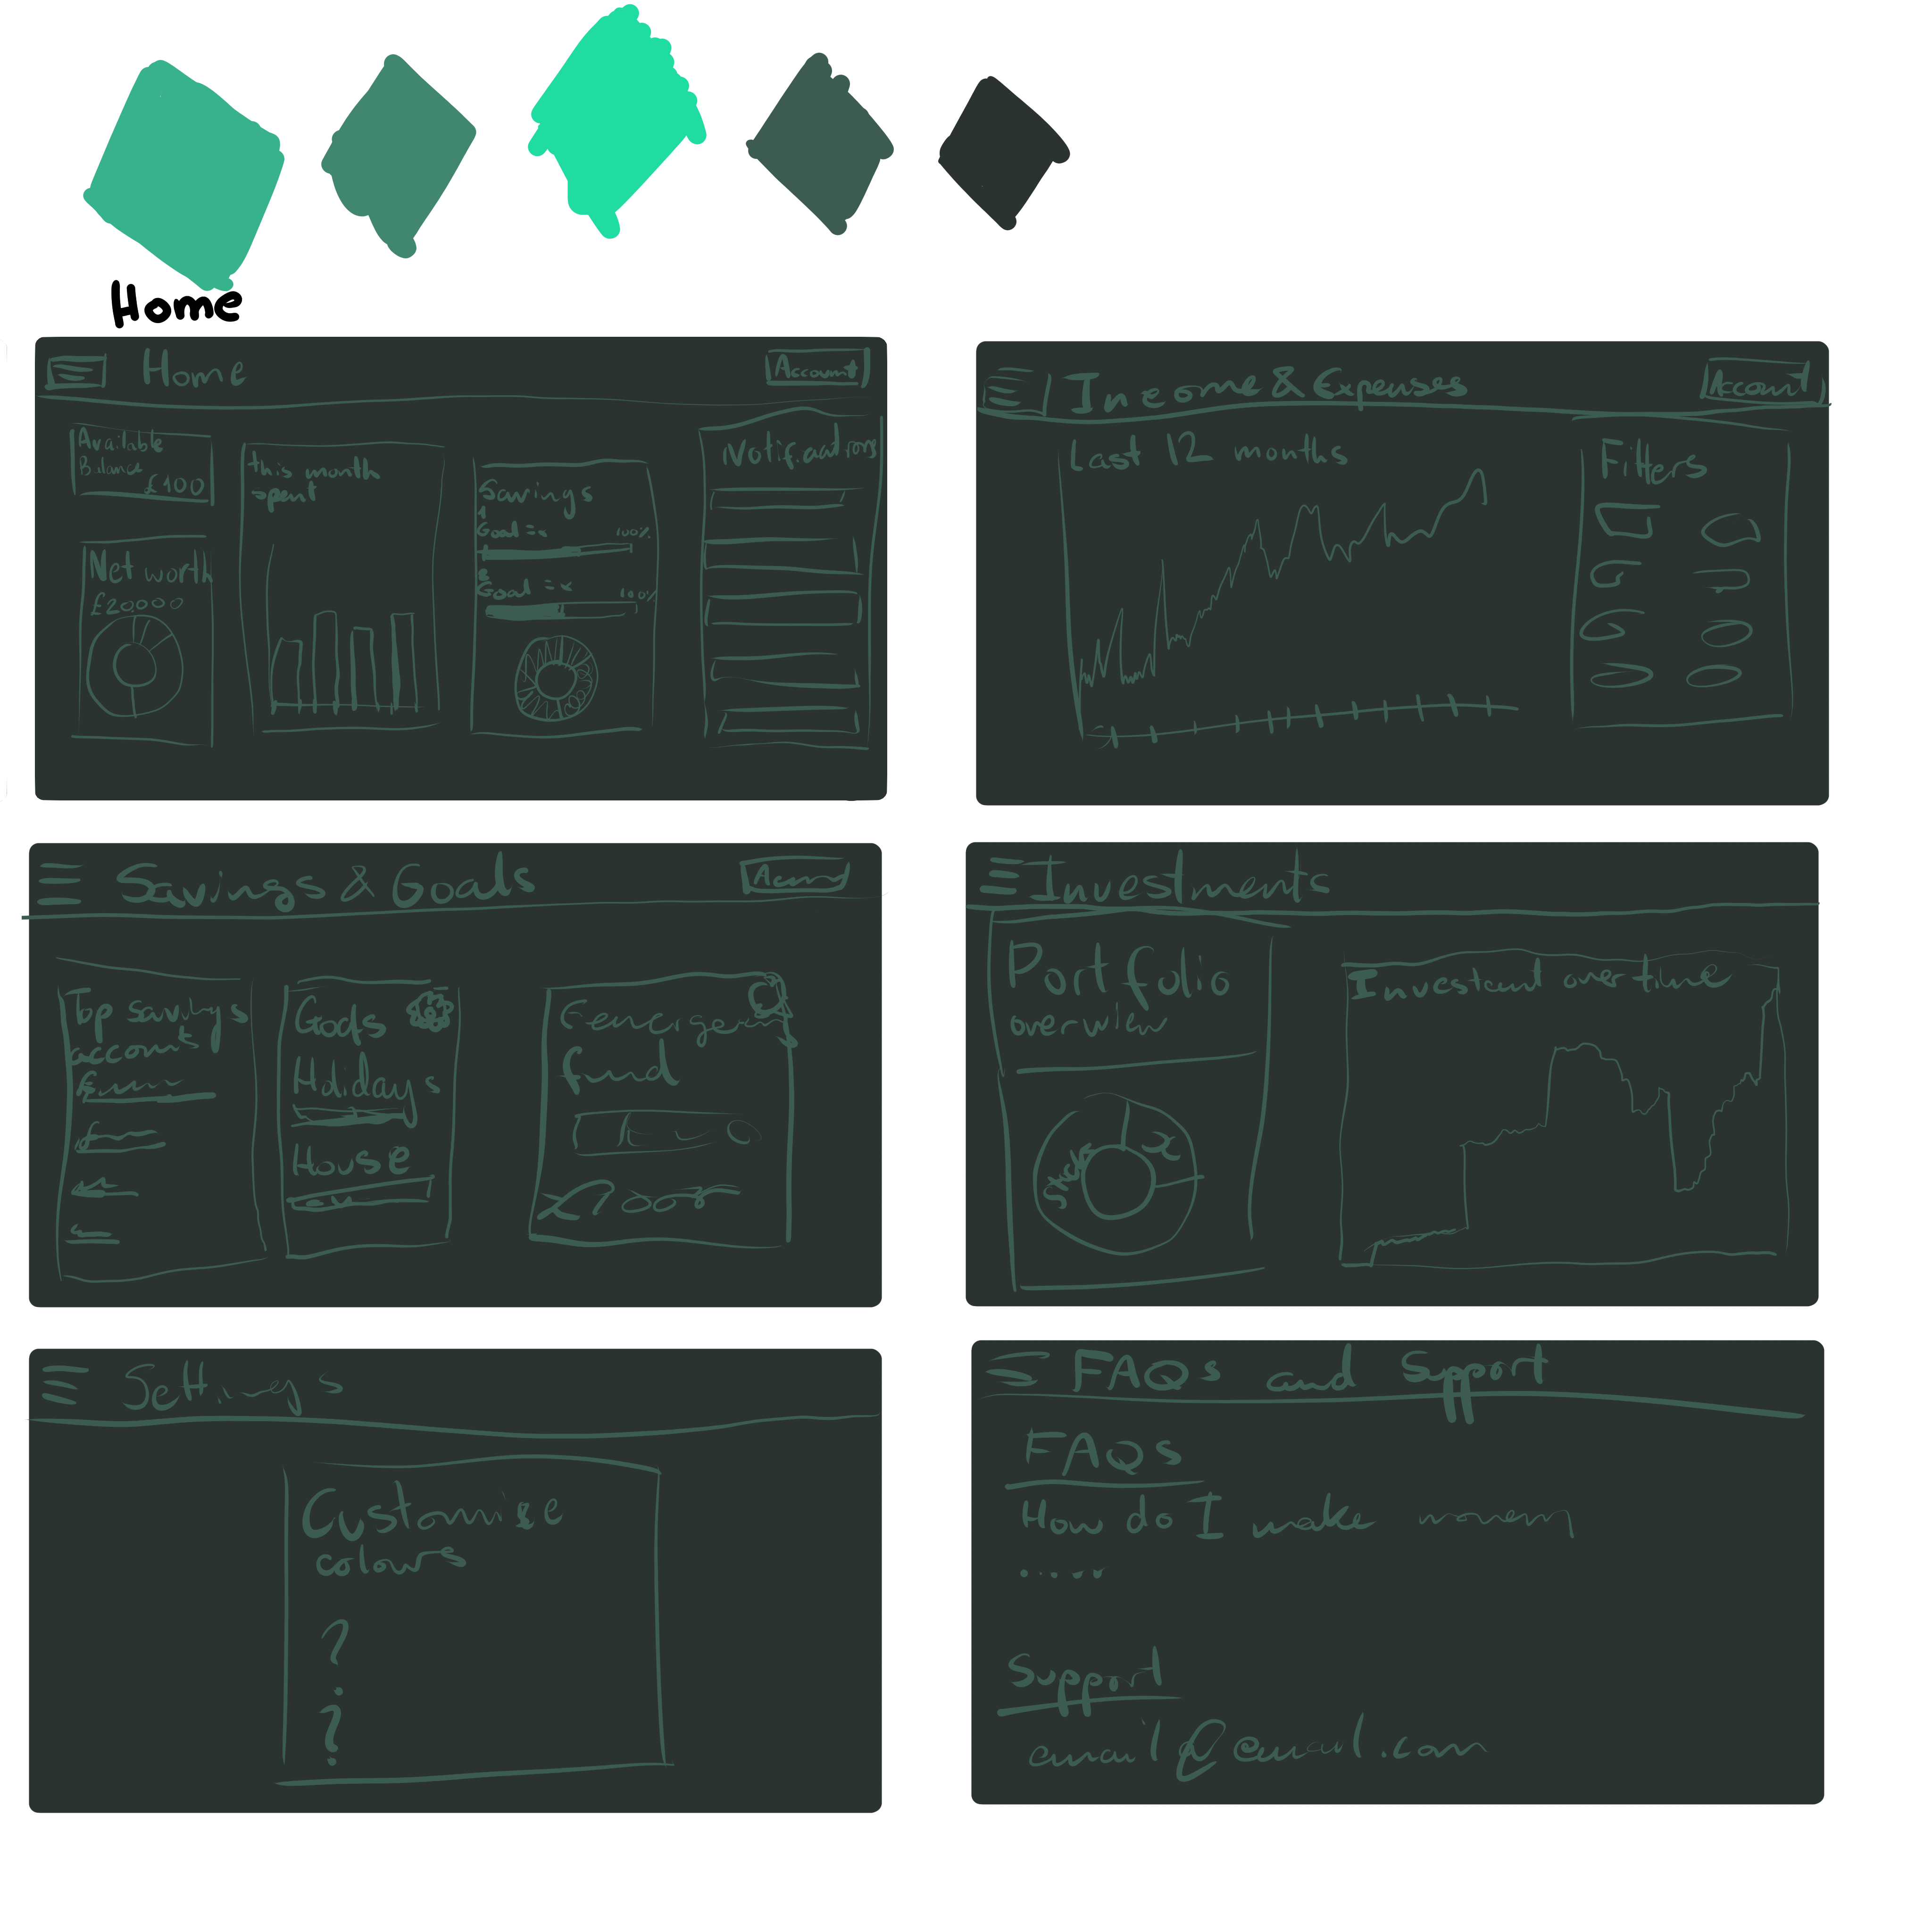 Home
Home
Account
Available
Balance
£100
Net worth
£20000
this month
Spent
Savings
Goal =
100%
Goal = x
100%
Notifications
Income & Expenses
Account
Last 12 months
Filter
Savings & Goals
Acc
Top Savings
accounts
Goals
Holidays
House
Emergency
Fund
Investments
Portfolio
overview
Investment over time
Settings
Customise
colours
?
?
FAQs and Support
FAQs
How do I make
.....
Support
email@email.com